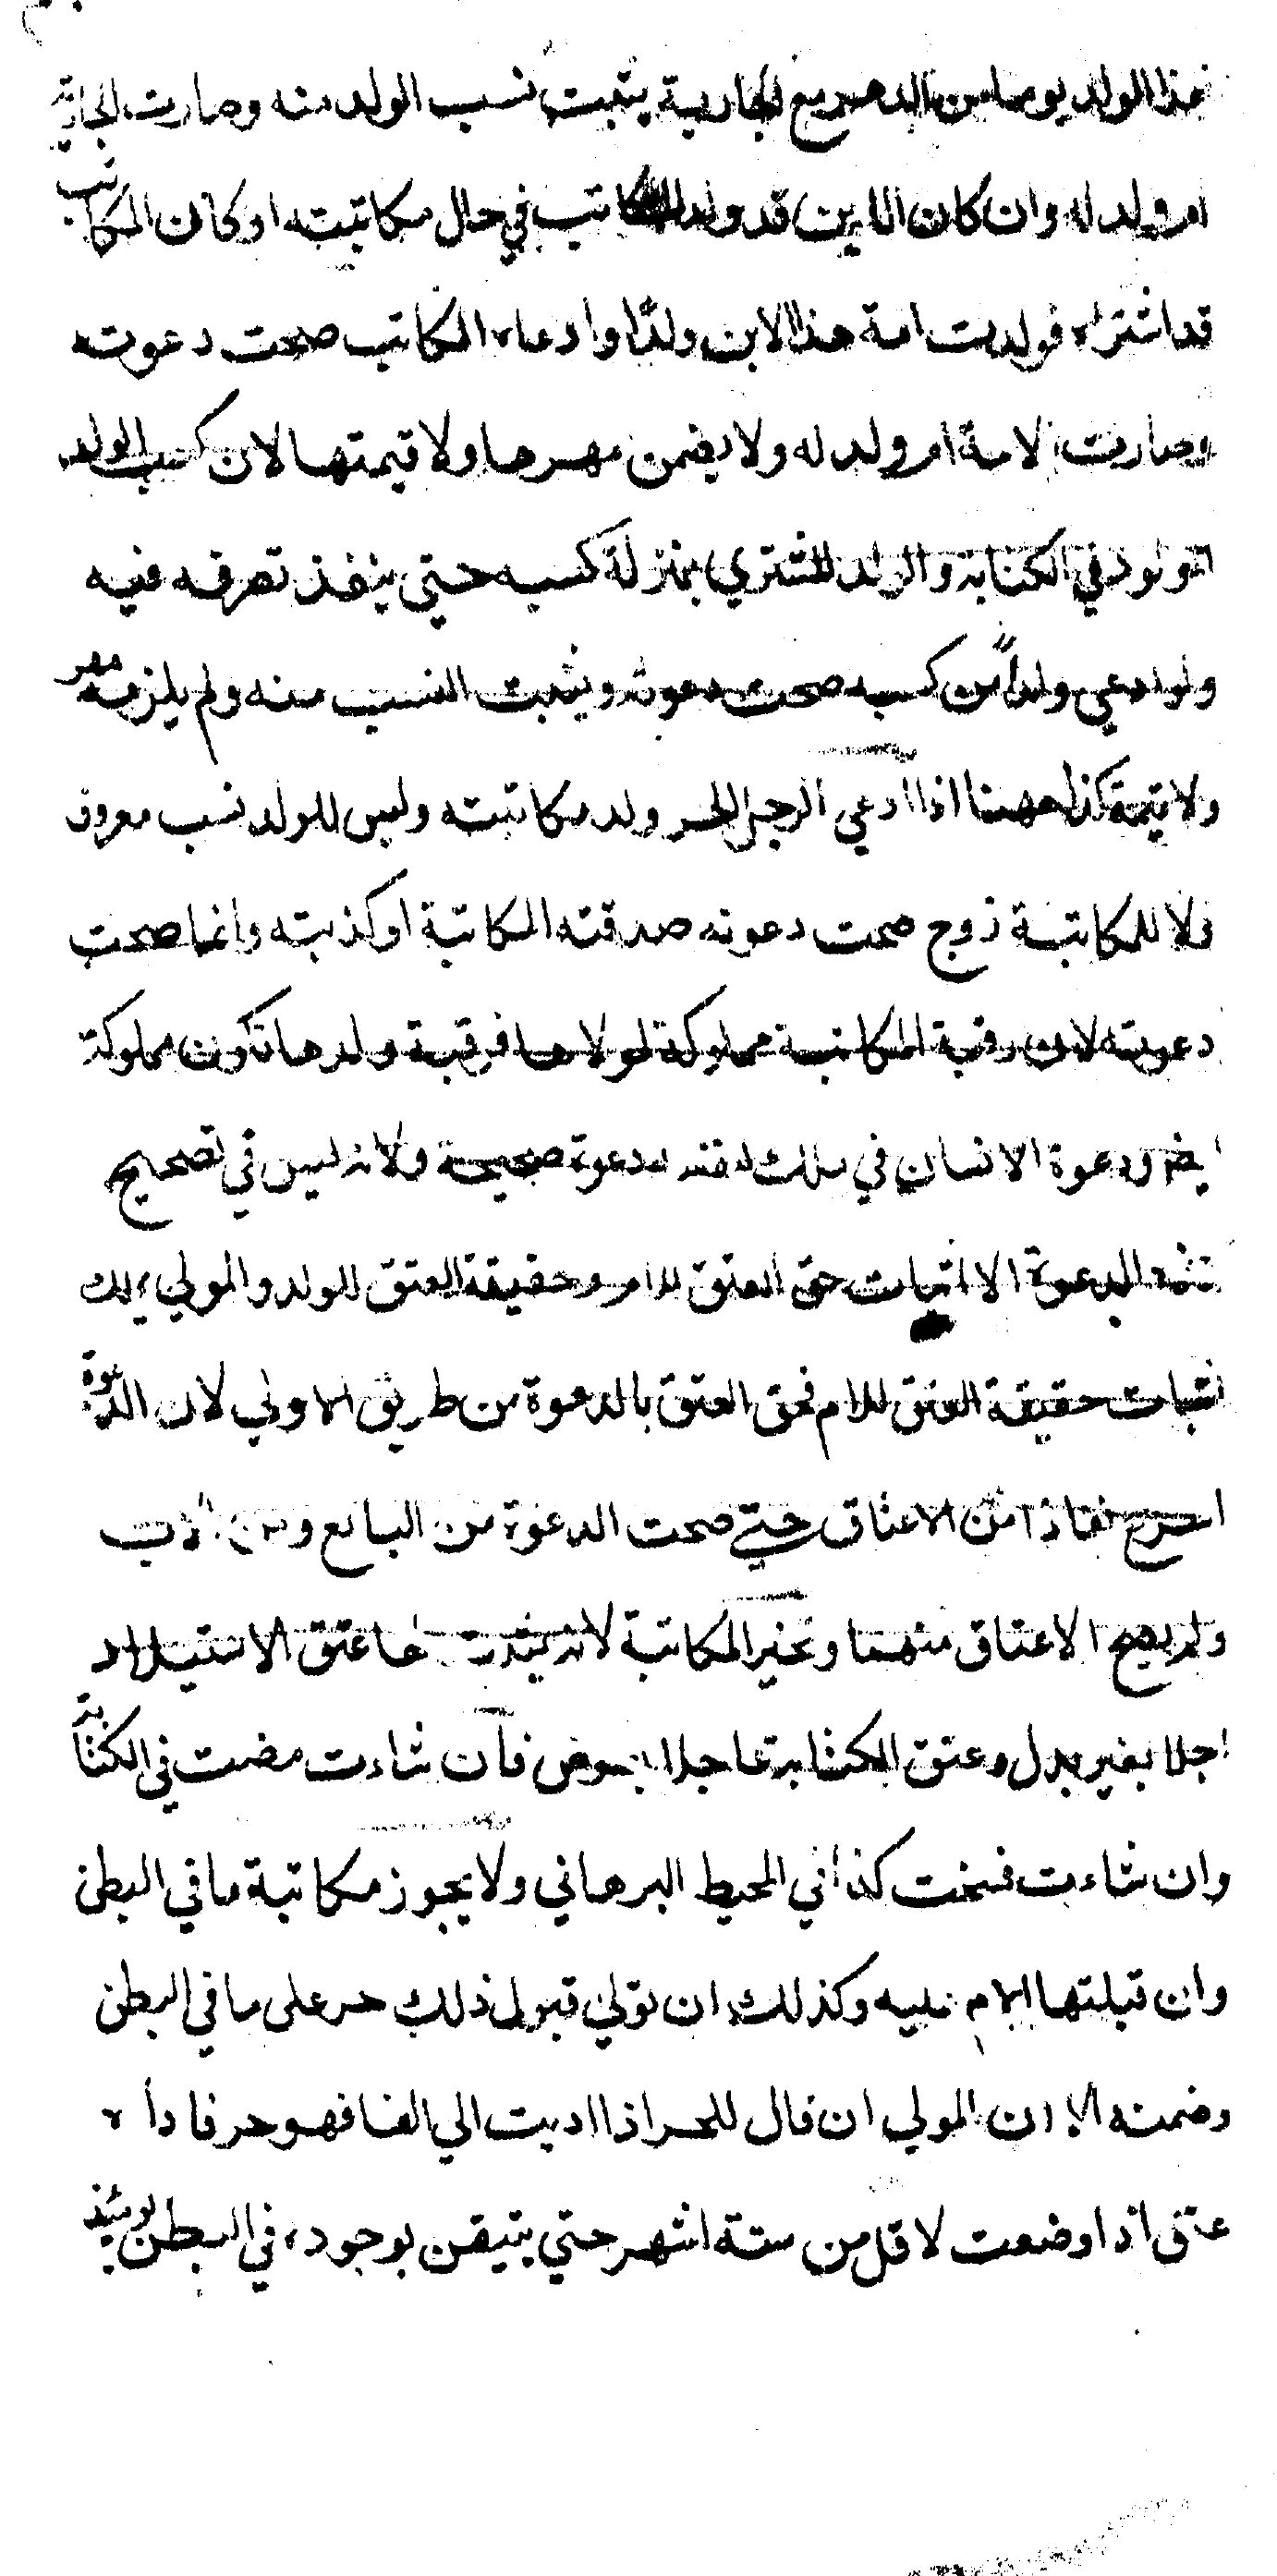 هذا الولد يوما من الدهر مع الجارية يثبت نسب الولد منه وصارت الجارية
ام ولد له وان كان الابن قد ولد للمكاتب في حال مكاتبته او كان المكاتب
قد اشتراه فولدت امة هذا الابن ولدًا وادعاه المكاتب صحت دعوته
وصارت الامة ام ولد له ولا يضمن مهرها ولا قيمتها لان كسب الولد
المولود في الكتابة والولد المشتري بمنزلة كسبه حتي ينفذ تصرفه فيه
ولو ادعي ولداً من كسبه صحت دعوته ويثبت النسب منه ولم يلزمه مهر
ولا قيمة كذا ههنا اذا ادعي الرجل الحر ولد مكاتبته وليس للولد نسب معروف
ولا للمكاتبة زوج صحت دعوته صدقته المكاتبة او كذبته وانما صحت
دعوته لان رقبة المكاتبة مملوكة لمولاها فرقبة ولدها تكون مملوكة
ايضا ودعوة الانسان في ملك نفسه دعوة صحيحة ولانه ليس في تصحيح
هذه الدعوة الا اثبات حق العتق للام وحقيقة العتق للولد والمولي يملك
اثبات حقيقة العتق للام فحق العتق بالدعوة من طريق الاولي لان الدعوة
اسرع نفاذا من الاعتاق حتي صحت الدعوة من البايع ومن الاب
ولم يصح الاعتاق منهما وتخير المكاتبة لانه يثبت لها عتق الاستيلاد
اجلا بغير بدل وعتق الكتابة عاجلا بعوض فان شاءت مضت في الكتابة
وان شاءت فسخت كذا في المحيط البرهاني ولا يجوز مكاتبة ما في البطن
وان قبلتها الام عليه وكذلك ان تولي قبول ذلك حر علي ما في البطن
وضمنه الا ان المولي ان قال للحر اذا اديت الي الفا فهو حر فاداه
عتق اذا وضعت لاقل من ستة اشهر حتي يتيقن بوجوده في البطن يومئذ